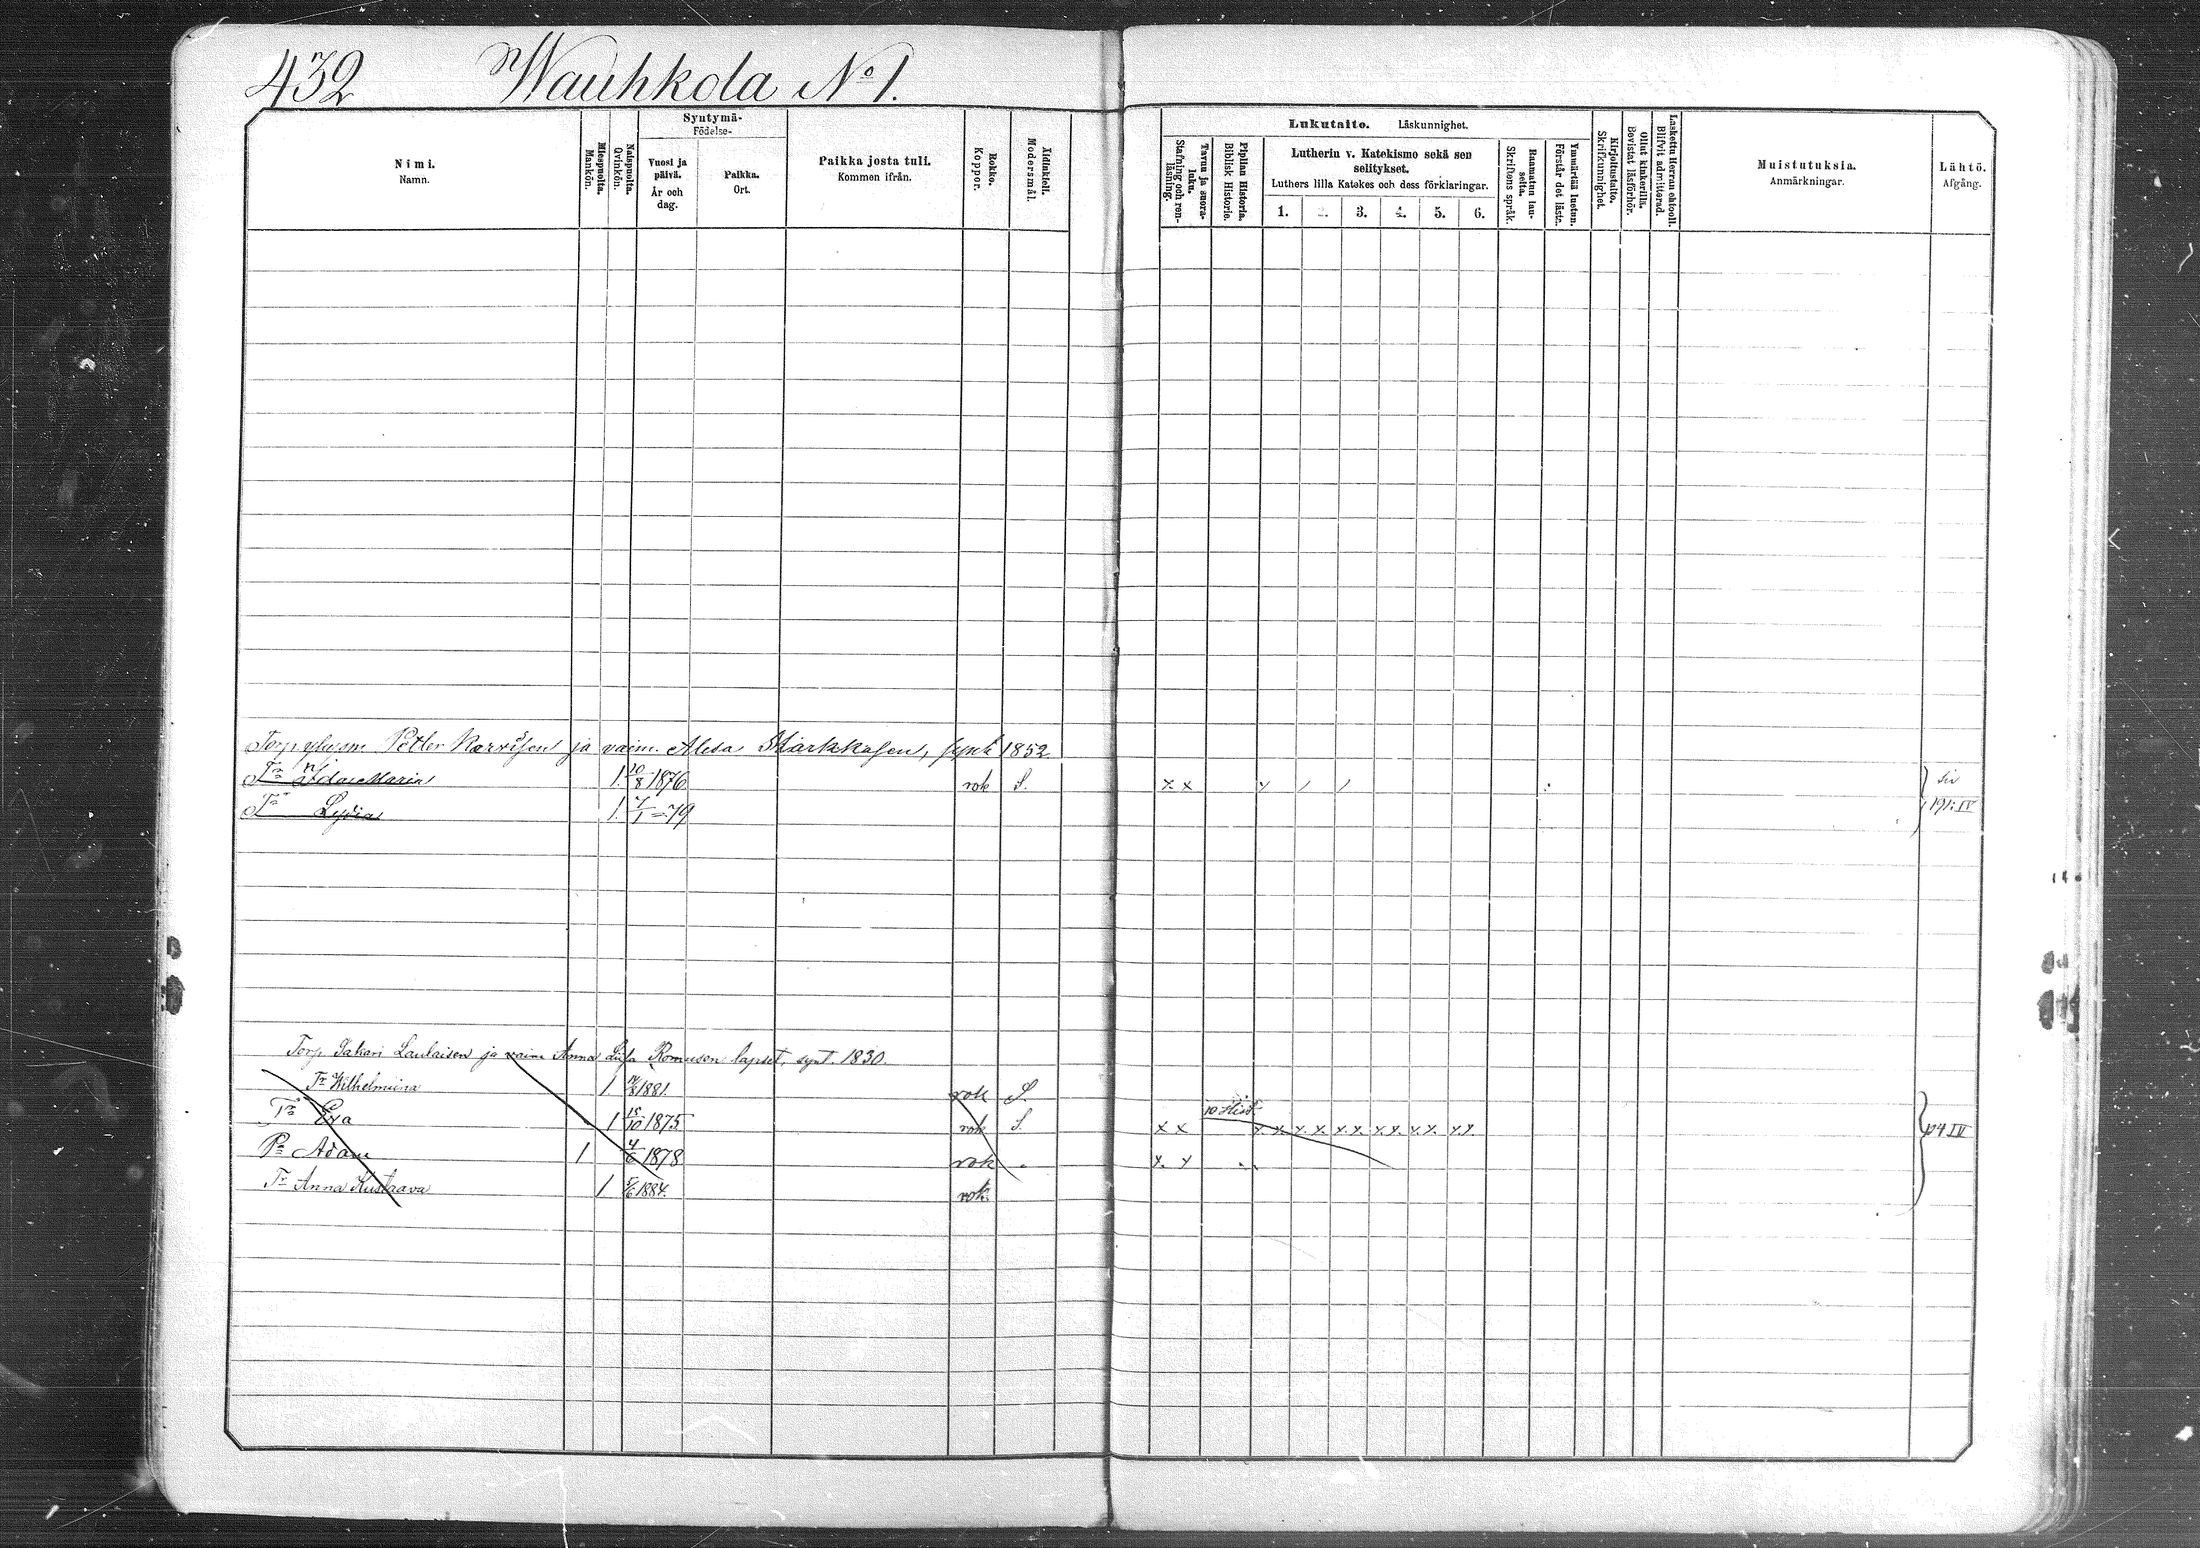 432 Wauhkola No 1.
Nimi.
Namn.
Miespuolta.
Mankön.
Naispuolta.
Qvinkön.
Syntymä-
Födelse-
Vuosi ja
päivä.
År och
dag.
Paikka.
Ort.
Paikka josta tuli.
Kommen ifrån.
Rokko.
Koppor.
Äidinkieli.
Modersmål.
Lukutaito. Läskunnighet.
Tavuu ja suora-
luku.
Stafning och ren-
läsning.
Piplian Historia.
Biblisk Historie.
Lutherin v. Katekismo sekä sen
selitykset.
Luthers lilla Katekes och dess förklaringar.
1. 2. 3. 4. 5. 6.
Raamatun lau-
seita.
Skriftens språk.
Ymmärtää luetun.
Förstår det lästa.
Kirjoitustaito.
Skrifkunnighet.
Ollut kinkerillä.
Bevistat läsförhör.
Laskettu Herran ehtooll.
Blifvit admitterad.
Muistutuksia.
Anmärkningar.
Lähtö.
Afgång.
Petter ja vaim. 1852
Tr Ida Maria 1. 10/8 1876 rok S. x x
Tr Lydia 1. 7/1 –79
191: IV
Torp. Sakari Laulaisen ja vaim Anna Liisa Romusen lapset, synt. 1830.
Tr Wilhelmiina 1 1881. rok S.
Tr Eva 1 15/10 1875 rok S. x x 10 Hist. x x x x x x x x x x x x
Pa Adam 1 4/6 1878 rok x x
Tr Anna Kustaava 1 5/6 1884. rok.
IV